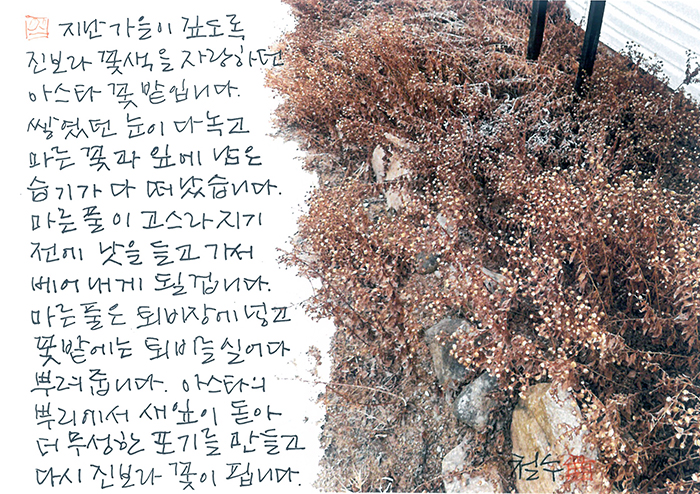 지난 가을이 깊도록
진보라 꽃색을 자랑하던
아스타 꽃밭입니다.
쌓였던 눈이 다 녹고
마른 꽃과 잎에 남은
습기가 다 떠났습니다.
마른 풀이 고스라지기
전에 낫을 들고 가서
베어내게 될겁니다.
마른 풀은 퇴비장에 넣고
꽃밭에는 퇴비를 실어다
뿌려줍니다. 아스타의
뿌리에서 새잎이 돋아
더 무성한 포기를 만들고
다시 진보라 꽃이 핍니다.
철수